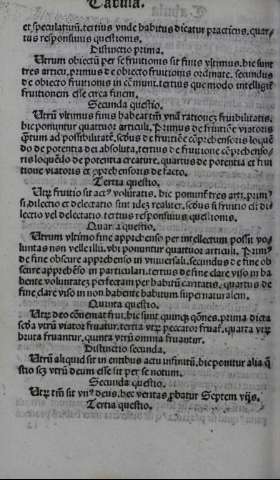 Tabula.
et speculatiuũ. tertius vnde habitus dicatur practicus. quar⸗
tus responsiuus questionis.
Distinctio prima.
Utrum obiectũ per se fruitionis sit finis vltimus. hic sunt
tres articu. primus de obiecto fruitionis ordinate. secundus
de obiecto fruitionis in cõmuni. tertius quo modo intelligit̃
fruitionem esse circa finem.
Secunda questio.
Utrũ vltimus finis habeat tm̃ vnã rationẽ fruibilitatis.
hic ponuntur quattuor articuli. Primus de fruitiõe viatoris
quãtum ad possibilitatẽ. scd̃us de fruitiõe cõprehensoris loquẽ
do de potentia dei absoluta. tertius de fruitione cõprehenso⸗
ris loquẽdo de potentia creature. quartus de potentia et frui
tione viatoris et cõprehensoris de facto.
Tertia questio.
Utrũ fruitio sit actꝰ volũtatis. hic ponunt̃ tres arti. primꝰ
si dilectio et delectatio sint idẽ realiter. scd̃us si fruitio sit di
lectio vel delectatio. tertius responsiuus questionis.
Quarta questio.
Utrum vltimo fine apprehenso per intellectum possit vo⸗
luntas non velle illũ. vbi ponuntur quattuor articuli. Primꝰ
de fine obscure apprehenso in vniuersali. secundus de fine ob
scure apprehẽso in particulari. tertius de fine clare viso in ha
bente voluntatẽ perfectam per habitũ caritatis. quartus de
fine clare viso in non habente habitum supernaturalem.
Quinta questio.
Utrũ deo cõueniat frui. hic sunt quinq̃ q̃ones. prima dicta
scd̃a vtrũ viator fruatur. tertia vtrũ peccator fruat̃. quarta vtrũ
bruta fruantur. quinta vtrũ omnia fruantur.
Distinctio secunda.
Utrũ aliquid sit in entibus actu infinitũ. hic ponitur alia q̃
stio scz vtrũ deum esse sit per se notum.
Secunda questio.
Utrũ tm̃ sit vnꝰ deus. hec veritas ꝓbatur septem vijs.
Tertia questio.